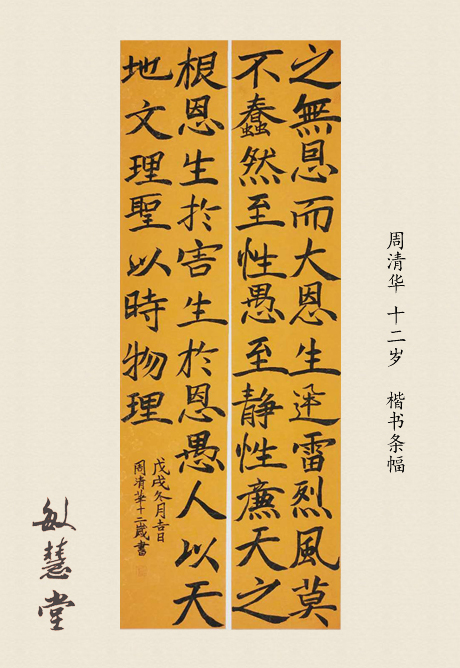 周清华 十二岁 楷书条幅
之無恩而大恩生迅雷烈風莫
不蠢然至性愚至靜性廉天之
根恩生於害生於恩愚人以天
地文理聖以時物理
戊戌冬月吉日
周清華十二歲書
敏慧堂